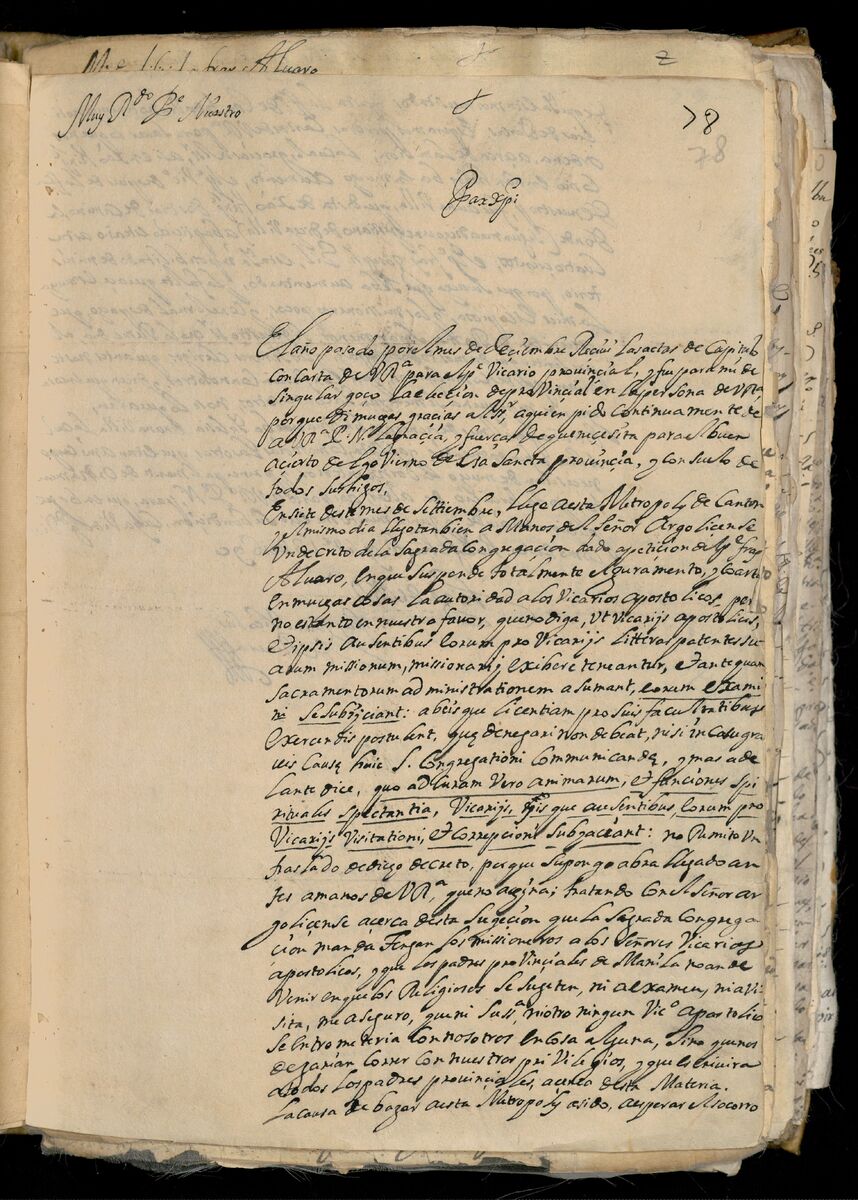 fray Alvaro
2
Muy R.do P.e Nuestro
78
78
Pax Xpi
El año pasado por el mes de Deciembre Recivi las actas de Capitulo
con Carta de V Ra para el Pe Vicario provincial, y fue para mi de
singular goço la elecion de provincial en la persona de V Ra
porque di muchas gracias al Sr, a quien pido continuamente de
a V Ra P. N. la gracia, y fuerças de que necesita para el buen
acierto del govierno de esa Sancta provinçia, y consuelo de
todos sus hijos.
En siete deste mes de Settiembre, llege a esta Metropoly de Canton
y el mismo dia llego tanbien a Manos del Señor Argolicense
Un decreto de la Sagrada Congregaçion dado a petiçion del Pe fray
Alvaro, en que suspende totalmente el juramento, y coarta
en muchas cosas la autoridad a los Vicarios apostolicos, pero
no es tanto en nuestro favor, que no diga, Vt Vicarijs apostolicis,
et ipsis ausentibus eorum pro Vicarijs litteras patentes su-
arum missionum, missionarij exibere teneantur, et antequam
sacramentorum administrationem asumant, eorum exami
ni se subijciant: ab eisque licentiam pro suis facultatibus
exercendis postulent, quę denegari non debeat, nisi in casu gra
vis causę huic S. Congregationi communicandę, y mas ade
lante dice, quo ad curam vero animarum, et functiones spi
rituales spectantia, Vicarijs, ijsque ausentibus, eorum pro
Vicarijs Visitationi, et correpcioni subjaceant: no Remito Un
traslado de dicho decreto, porque supongo abra llegado an
tes a manos de V Ra, que no a China; tratando con el Señor ar
golicense acerca desta sugeçion que la Sagrada Congrega
çion manda tengan los missioneros a los Señores Vicarios
apostolicos, y que los padres provinçiales de Manila no an de
Venir en que los Religiosos se sugeten, ni a examen, ni a Vi
sita, me aseguro, que ni su Ssa, ni otro ningun Vico apostolico
se entrometeria con nosotros en cosa alguna, sino que nos
dejarian correr con nuestros privilegios, y que escrivira
a todos los padres provinciales, acerca desta Materia.
La causa de bajar a esta Metropoly a sido, a esperar el socorro